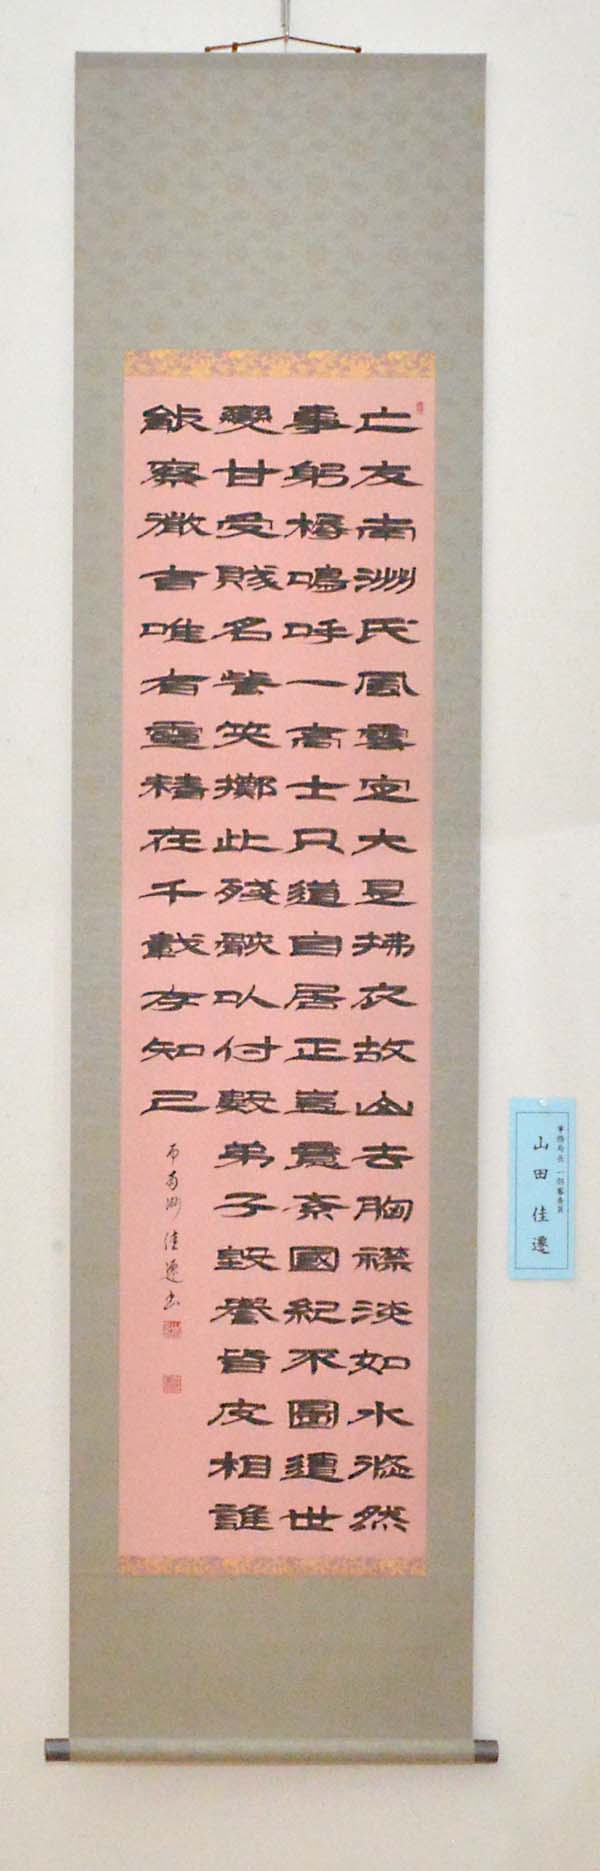 亡友南洲氏風雲定大是拂衣故山去胸襟淡如水悠然
事躬耕嗚呼一高士只道自居正豈意紊國紀不圖遭世
變甘受賊名訾笑擲此殘骸以付數弟子毀譽皆皮相誰
能察微旨唯有靈精在千載存知己
弔南洲 佳遷書
事務局長 一部審査員
山田佳遷